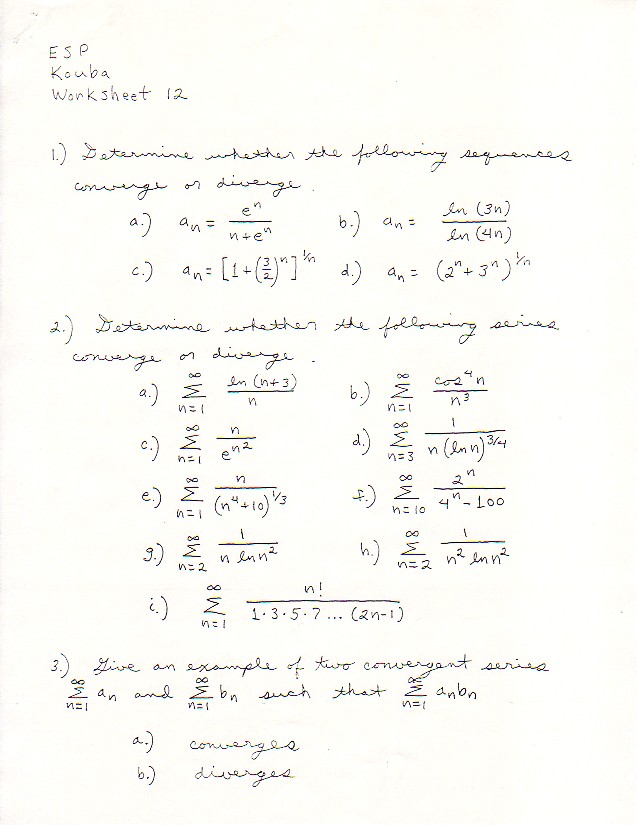 ESP
Kouba
Worksheet 12
1.) Determine whether the following sequences
converge or diverge.
a.) aₙ = eⁿ/(n+eⁿ) b.) aₙ = ln (3n)/ln (4n)
c.) aₙ = [1+(3/2)ⁿ]^(1/n) d.) aₙ = (2ⁿ+3ⁿ)^(1/n)
2.) Determine whether the following series
converge or diverge.
a.) ∑_{n=1}^{∞} ln (n+3)/n b.) ∑_{n=1}^{∞} cos⁴n/n³
c.) ∑_{n=1}^{∞} n/e^(n²) d.) ∑_{n=3}^{∞} 1/(n (ln n)^(3/4))
e.) ∑_{n=1}^{∞} n/(n⁴+10)^(1/3) f.) ∑_{n=10}^{∞} 2ⁿ/(4ⁿ-100)
g.) ∑_{n=2}^{∞} 1/(n ln n²) h.) ∑_{n=2}^{∞} 1/(n² ln n²)
i.) ∑_{n=1}^{∞} n!/(1·3·5·7...(2n-1))
3.) Give an example of two convergent series
∑_{n=1}^{∞} aₙ and ∑_{n=1}^{∞} bₙ such that ∑_{n=1}^{∞} aₙbₙ
a.) converges
b.) diverges